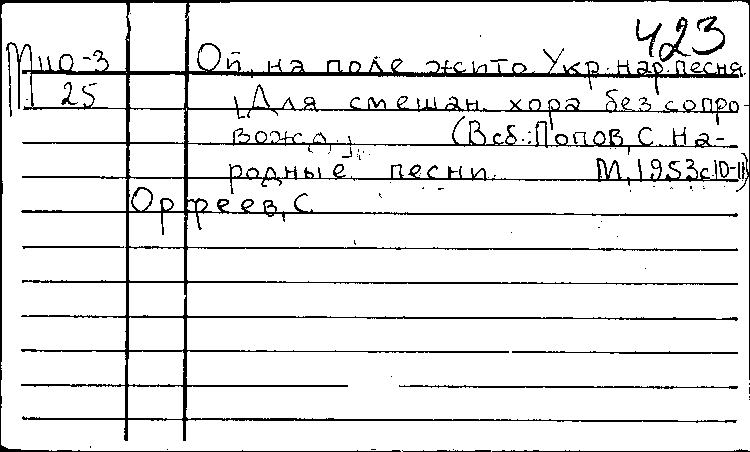 423
М110-3 Ой, на поле жито Укр. нар. песня
25 [Для смешан. хора без сопро-
вожд.] (В сб.: Попов, С. На-
родные песни. М, 1953 с. 10-11)
Орфеев, С.